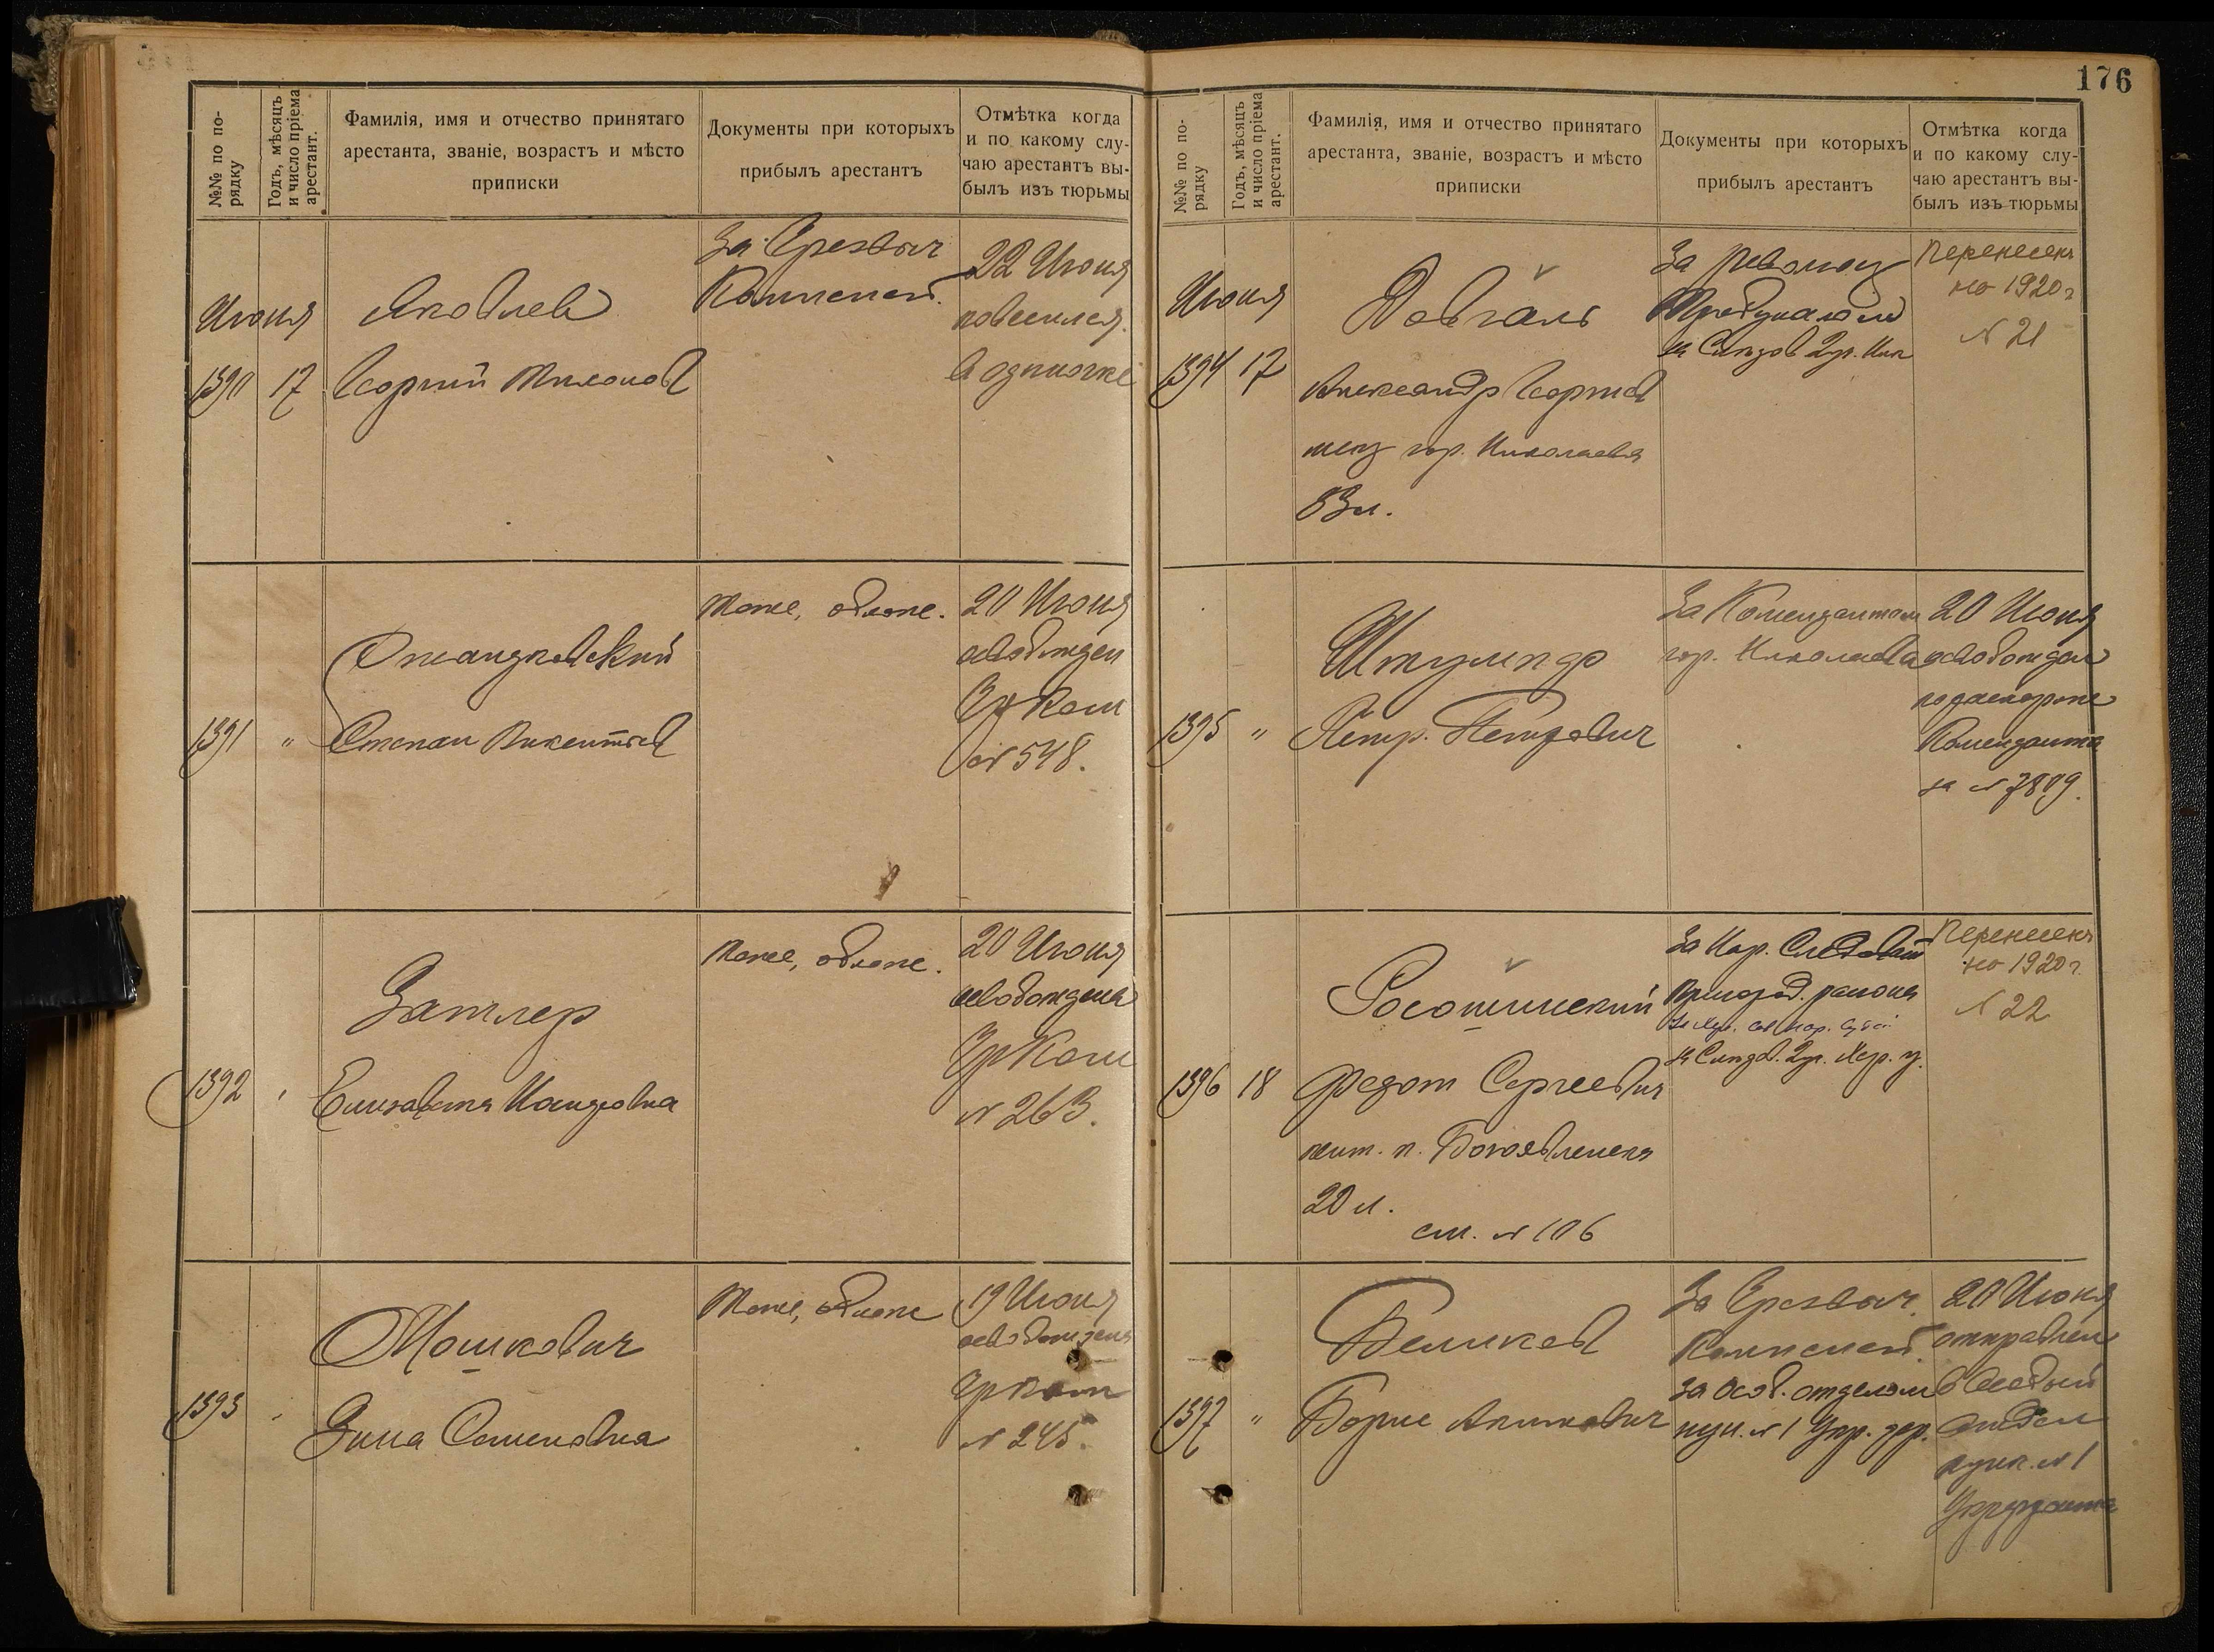 176
№№ по по-
рядку
Годъ, мѣсяцъ
и число пріема
арестант.
Фамилія, имя и отчество принятаго
арестанта, званіе, возрастъ и мѣсто
приписки
Документы при которыхъ
прибылъ арестантъ
Отмѣтка когда
и по какому слу-
чаю арестантъ вы-
былъ изъ тюрьмы
Июня
1390 17
Яковлев
Георгий
За Чрезвыч
Комиссией.
22 Июня
повесился
в одиночке
1391 "
Степан Викентьев
Тоже, обложе.
20 Июня
освобожден
ЧрКом
№ 548.
1392 "
Затлер
Елизавета
Тоже, обложе.
20 Июня
освобождена
ЧрКом
№ 263.
1393 "
Мошкович
Зина Семеновна
Тоже, обложе
19 Июня
освобождена
ЧрКом
№ 245.
№№ по по-
рядку
Годъ, мѣсяцъ
и число пріема
арестант.
Фамилія, имя и отчество принятаго
арестанта, званіе, возрастъ и мѣсто
приписки
Документы при которыхъ
прибылъ арестантъ
Отмѣтка когда
и по какому слу-
чаю арестантъ вы-
былъ изъ тюрьмы
Июня
1394 17
Довгаль
Александр Георгиев
мещ гор. Николаева
За Революц
Трибуналом
Перенесен
на 1920 г
№ 21
1395 "
Штумпф
Петр. Петрович
За Комендантом
гор. Николаева
20 Июня
освобожден
Коменданта
за № 7809.
1396 18
Росошинский
Федот Сергеевич
жит. п. Богоявленска
20 л.
см. № 106
За Нар. Следоват
Пригород. района
Перенесен
на 1920 г.
№ 22
1397 "
Великов
Борис
За Чрезвыч.
Комиссией.
за Особ. отделом
пун. № 1
20 Июня
отправлен
в Особый
отдел
пунк. № 1